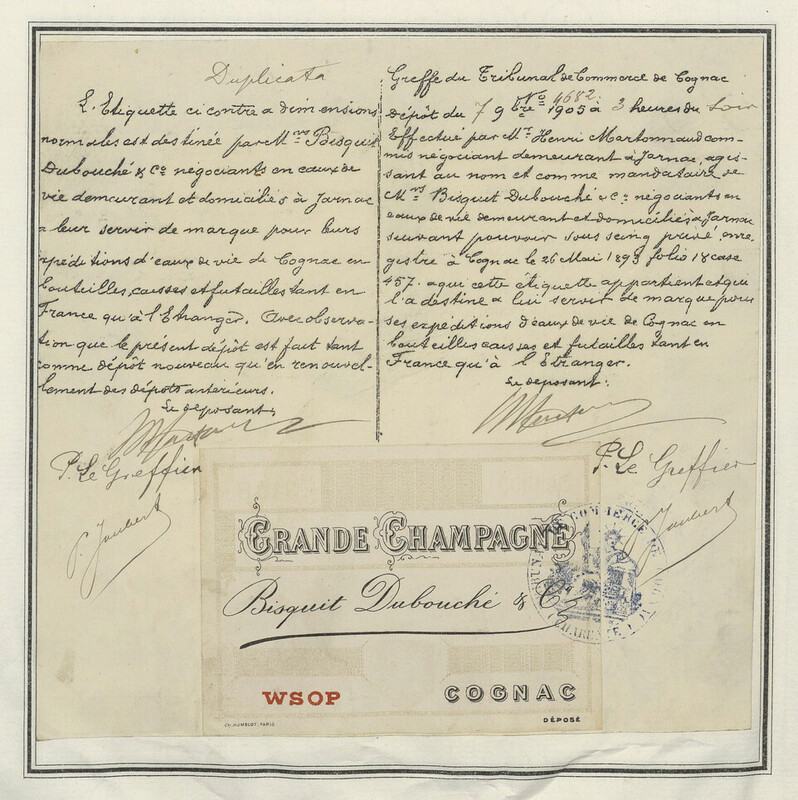 Duplicata
L'Etiquette ci contre a dimensions
normales est destinée par Mrs Bisquit
Dubouché & Co négociants en eaux de
vie demeurant et domiciliés à Jarnac
a leur servir de marque pour leurs
expéditions d'eaux de vie de Cognac en
bouteilles, caisses et futailles tant en
France qu'à l'Etranger. Avec observa-
tion que le présent dépôt est fait tant
comme dépôt nouveau qu'en renouvel-
lement des dépôts antérieurs.
Le déposant,
P. Le Greffier
P. Jaubert
Greffe du Tribunal de Commerce de Cognac
No 4682
Dépôt du 7 9bre 1905 à 3 heures du soir
Effectué par Mr Henri Martonnaud com-
mis négociant demeurant à Jarnac, agis-
sant au nom et comme mandataire de
Mrs Bisquit Dubouché & Co négociants en
eaux de vie demeurant et domiciliés à Jarnac
suivant pouvoir sous seing privé, enre-
gistre à Cognac le 26 Mai 1893 folio 18 case
457. a qui cette étiquette appartient et qui
l'a destine a lui servir de marque pour
ses expéditions d'eaux de vie de Cognac en
bouteilles caisses et futailles tant en
France qu'à l'Etranger.
Le déposant:
P. Le Greffier
Jaubert
GRANDE CHAMPAGNE
Bisquit Dubouché & Co
WSOP COGNAC
CH. HUMBLOT, PARIS DÉPOSÉ
TRIBUNAL DE COMMERCE DE COGNAC